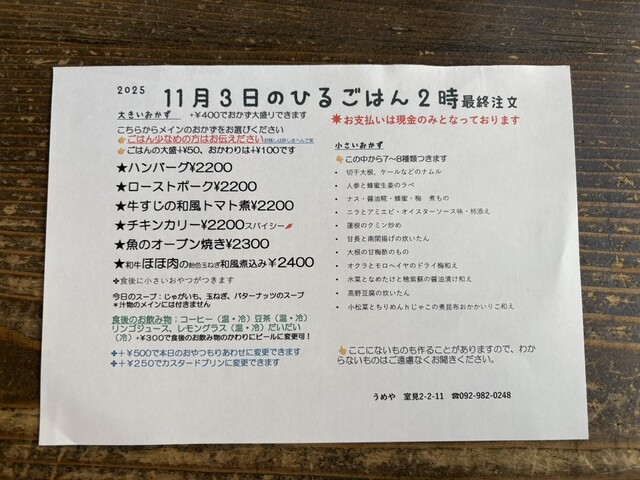 2025
11月3日のひるごはん2時最終注文
大きいおかず +¥400でおかず大盛りできます
こちらからメインのおかずをお選びください
ごはん少なめの方はお伝えください
ごはんの大盛+¥50、おかわりは+¥100です
★ハンバーグ¥2200
★ローストポーク¥2200
★牛すじの和風トマト煮¥2200
★チキンカリー¥2200スパイシー
★魚のオープン焼き¥2300
★和牛ほほ肉の飴色玉ねぎ和風煮込み¥2400
✤食後に小さいおやつがつきます
今日のスープ：じゃがいも、玉ねぎ、バターナッツのスープ
＊汁物のメインには付きません
食後のお飲み物：コーヒー（温・冷）豆茶（温・冷）
リンゴジュース、レモングラス（温・冷）だいだい
（冷） +¥300で食後のお飲み物のかわりにビールに変更可！
✤＋¥500で本日のおやつもりあわせに変更できます
✤＋¥250でカスタードプリンに変更できます
✷お支払いは現金のみとなっております
小さいおかず
この中から7〜8種類つきます
• 切干大根、ケールなどのナムル
• 人参と蜂蜜生姜のラペ
• ナス・醤油糀・蜂蜜・梅 煮もの
• ニラとアミエビ・オイスターソース味・柿添え
• 蓮根のクミン炒め
• 甘長と南関揚げの炊いたん
• 大根の甘梅酢のもの
• オクラとモロヘイヤのドライ梅和え
• 水菜となめたけと穂紫蘇の醤油漬け和え
• 高野豆腐の炊いたん
• 小松菜とちりめんｈじゃこの煮昆布おかかいりこ和え
ここにないものも作ることがありますので、わか
らないものはご遠慮なくお聞きください。
うめや 室見2-2-11 ☎092-982-0248